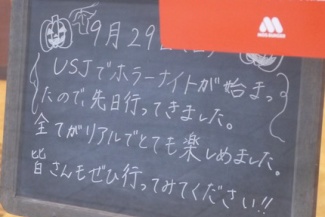 9月29日
USJでホラーナイトが始まっ
たので、先日行ってきました。
全てがリアルでとても楽しめました。
皆さんもぜひ行ってみてください!!